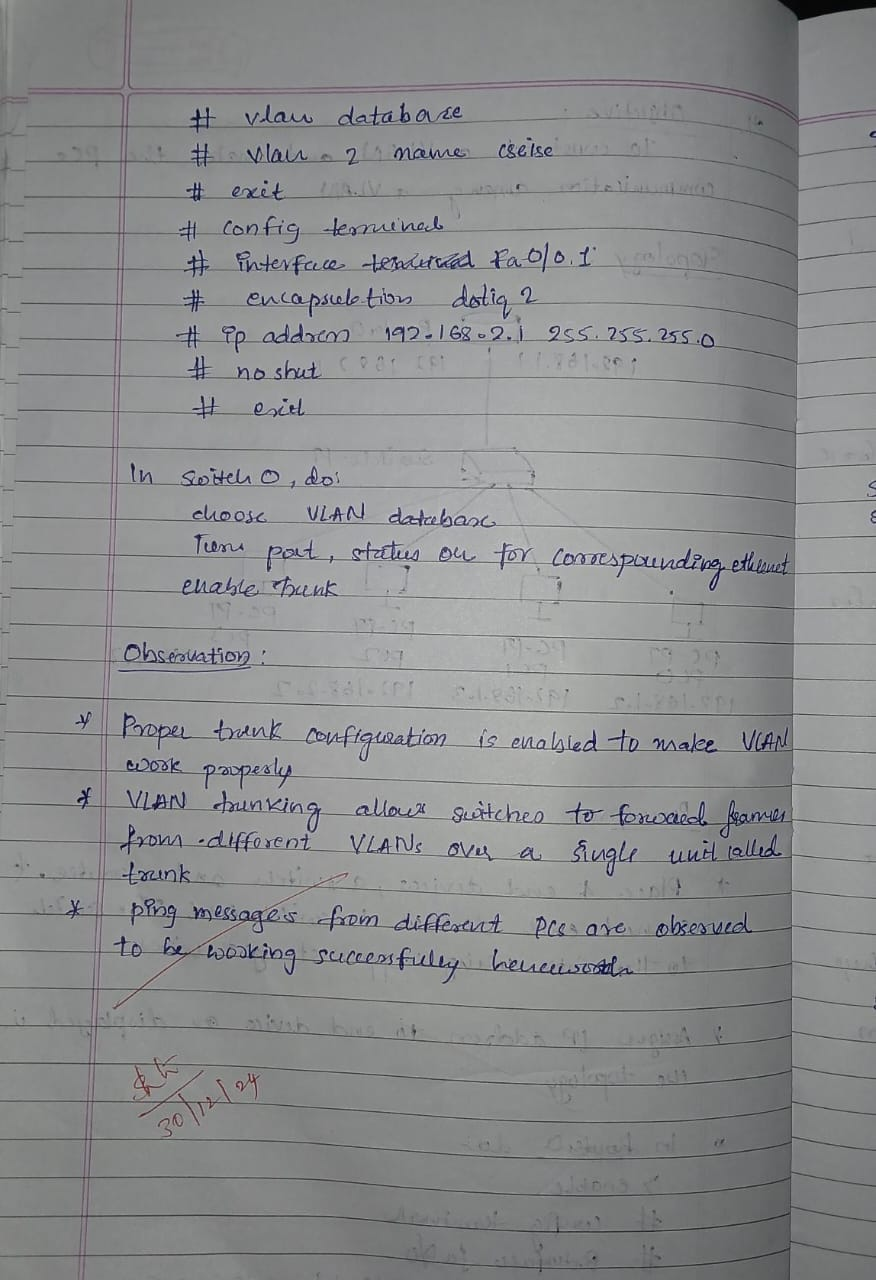 # vlan database
# vlan 2 name cseise
# exit
# config terminal
# interface Fa0/0.1
# encapsulation dot1q 2
# ip address 192.168.2.1 255.255.255.0
# no shut
# exit
In switch 0, do:
choose VLAN database
Turn port, status on for corresponding ethernet
enable trunk
Observation:
* Proper trunk configuration is enabled to make VLAN
work properly
* VLAN trunking allows switches to forward frames
from different VLANs over a single unit called
trunk
* ping messages from different PCs are observed
to be working successfully
30/12/24